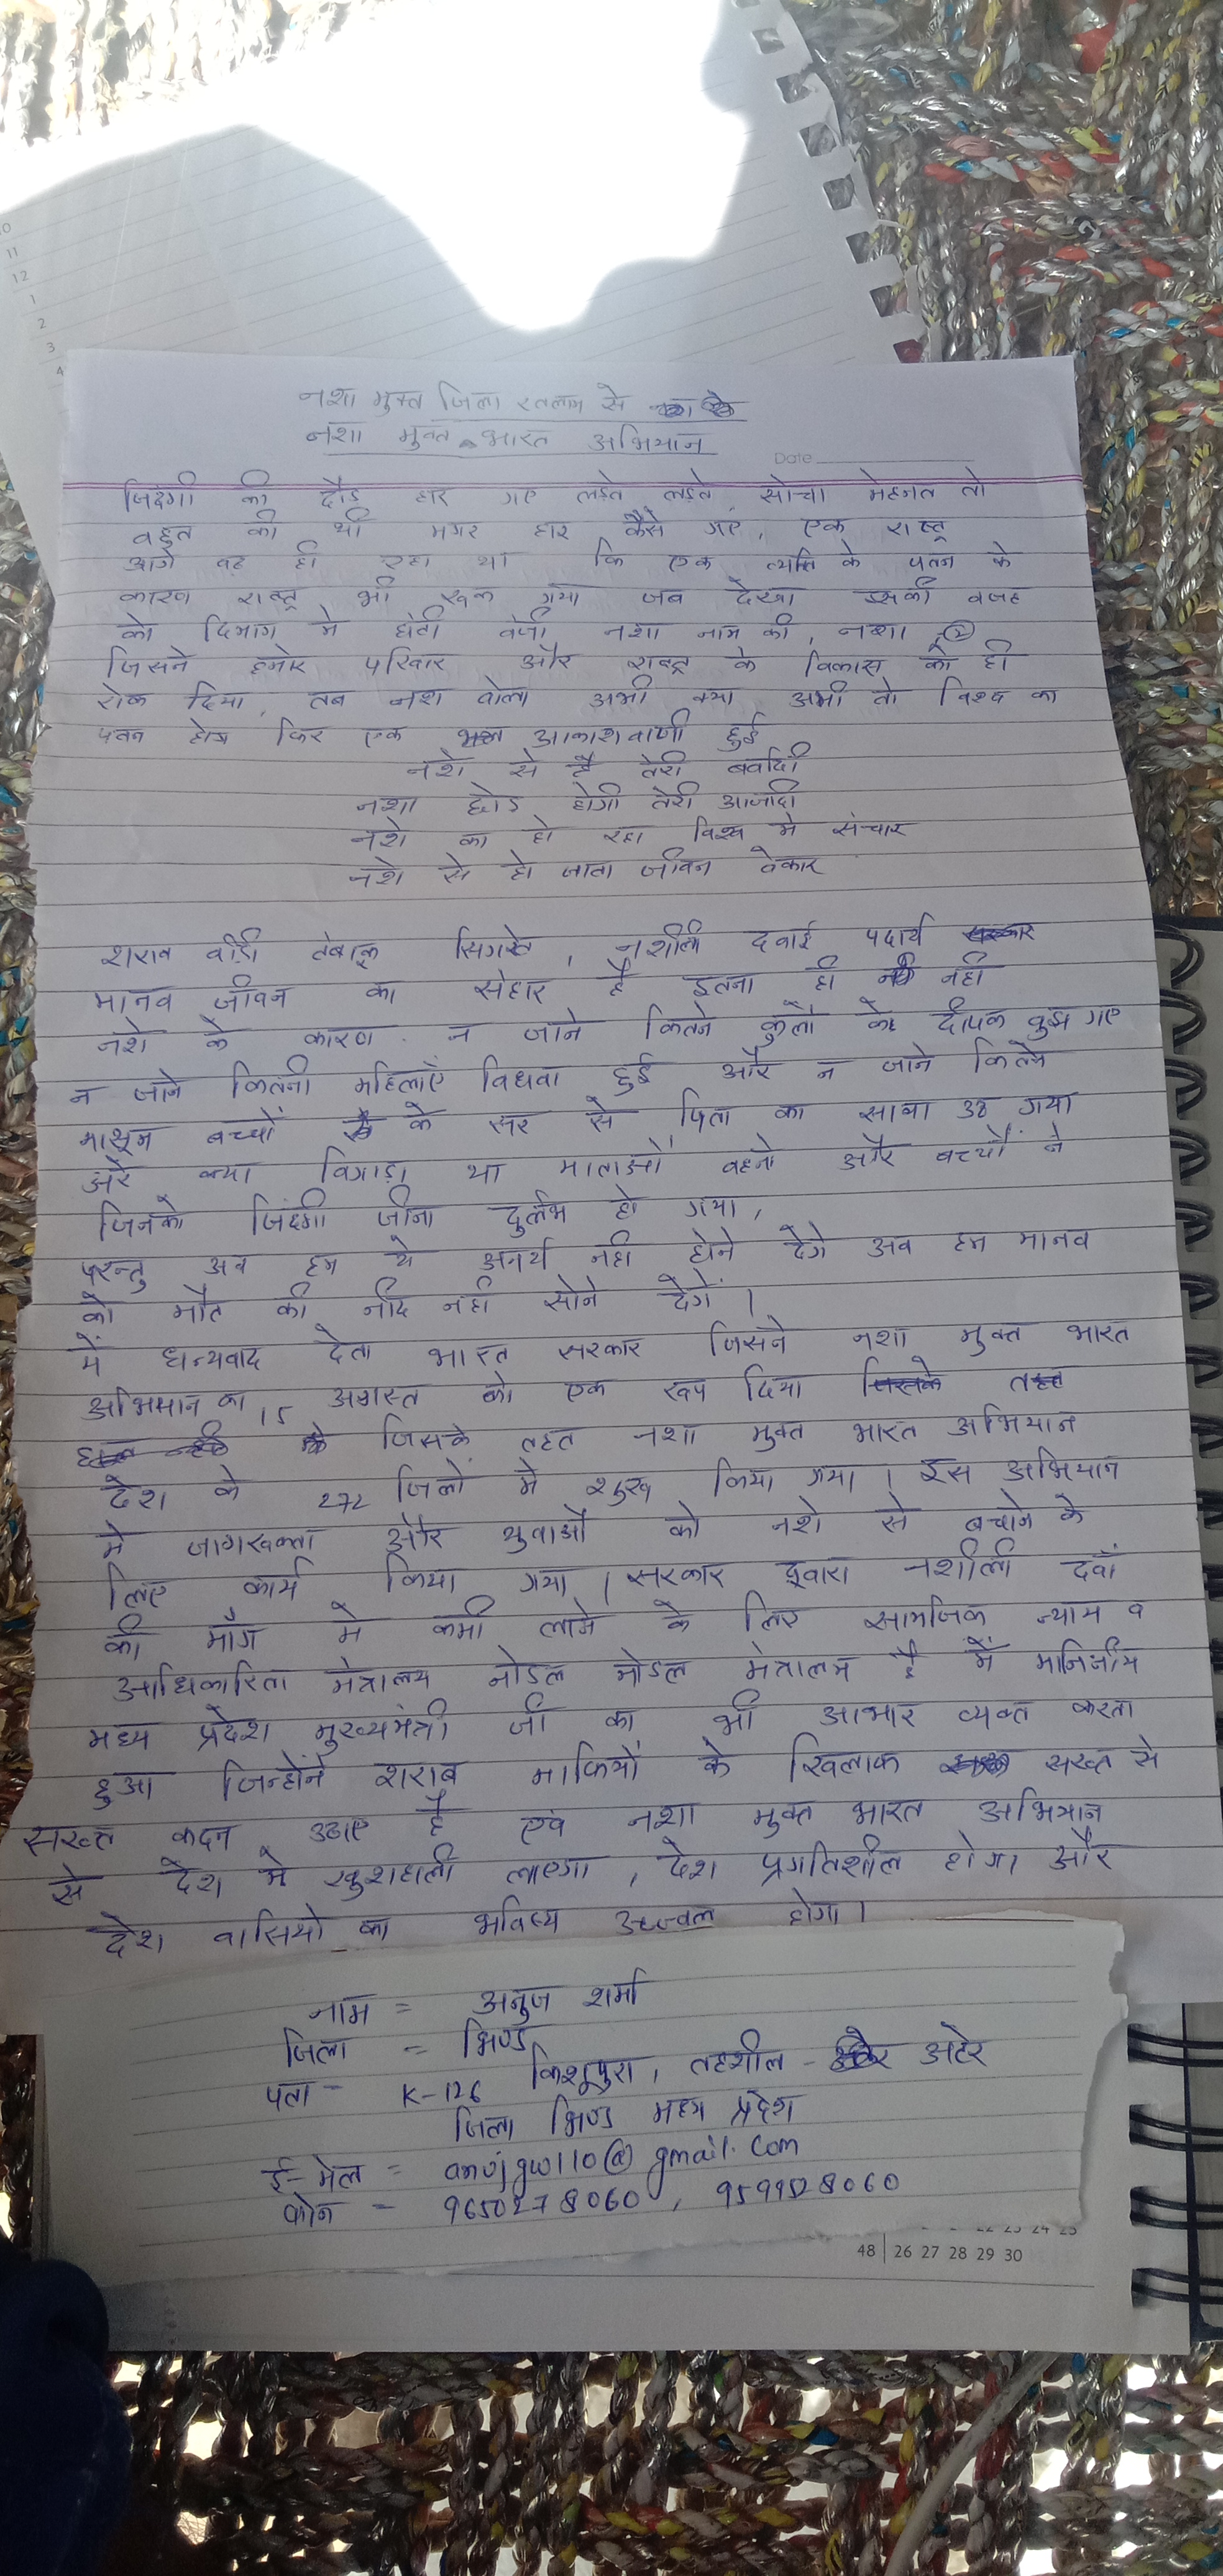 नशा मुक्त जिला रतलाम से
नशा मुक्त भारत अभियान
Date
जिदंगी की दौड हार गए लड़ते लड़ते सोचा मेहनत तो
बहुत की थी मगर हार कैसे गए, एक राष्ट्र
आगे बढ़ ही रहा था कि एक व्यक्ति के पतन के
कारण राष्ट्र भी रूक गया जब देखा इसकी वजह
को दिमाग मे घंटी बजी नशा नाम की, नशा
जिसने हमारे परिवार और राष्ट्र के विकास को ही
रोक दिया, तब नशा बोला अभी क्या अभी तो विश्व का
पतन होगा फिर एक आकाशवाणी हुई
नशे से है तेरी बर्वादी
नशा छोड होगी तेरी आजादी
नशे का हो रहा विश्व मे संचार
नशे से हो जाता जीवन वेकार
शराब बीड़ी तंबाकू सिगरेट, नशीली दवाई पदार्थ
मानव जीवन का संहार है इतना ही नही
नशे के कारण न जाने कितने कुलो के दीपक बुझ गए
न जाने कितनी महिलाएँ विधवा हुई और न जाने कितने
मासूम बच्चों के सर से पिता का साया उठ गया
अरे क्या बिगाड़ा था माताओं बहनो और बच्चों ने
जिनको जिंदगी जीना दुर्लभ हो गया,
परन्तु अब हम ये अनर्थ नही होने देंगे अब हम मानव
को मौत की नींद नही सोने देगें।
में धन्यवाद देता भारत सरकार जिसने नशा मुक्त भारत
अभियान का 15 अगस्त को एक रूप दिया
जिसके तहत नशा मुक्त भारत अभियान
देश के 272 जिलो मे शुरू किया गया। इस अभियान
मे जागरूकता और युवाओं को नशे से बचाने के
लिए कार्य किया गया। सरकार द्वारा नशीली दवाँ
की माँग मे कमी लाने के लिए सामजिक न्याय व
आधिकारिता मंत्रालय नोडल मंत्रालय है में
मध्य प्रदेश मुख्यमंत्री जी का भी आभार व्यक्त करता
हुआ जिन्होंने शराब माफियों के खिलाफ सख्त से
सख्त कदम उठाए है एवं नशा मुक्त भारत अभियान
से देश मे खुशहाली लाएगा, देश प्रगतिशील होगा और
देश वासियो का भविष्य उज्जवल होगा।
नाम = अनुज शर्मा
जिला = भिण्ड
पता - K-126 किशूपुरा, तहशील - अटेर
जिला भिण्ड मध्य प्रदेश
ई-मेल = anujgw110@gmail.com
फोन - 9650278060,
22 23 24 25
48 26 27 28 29 30